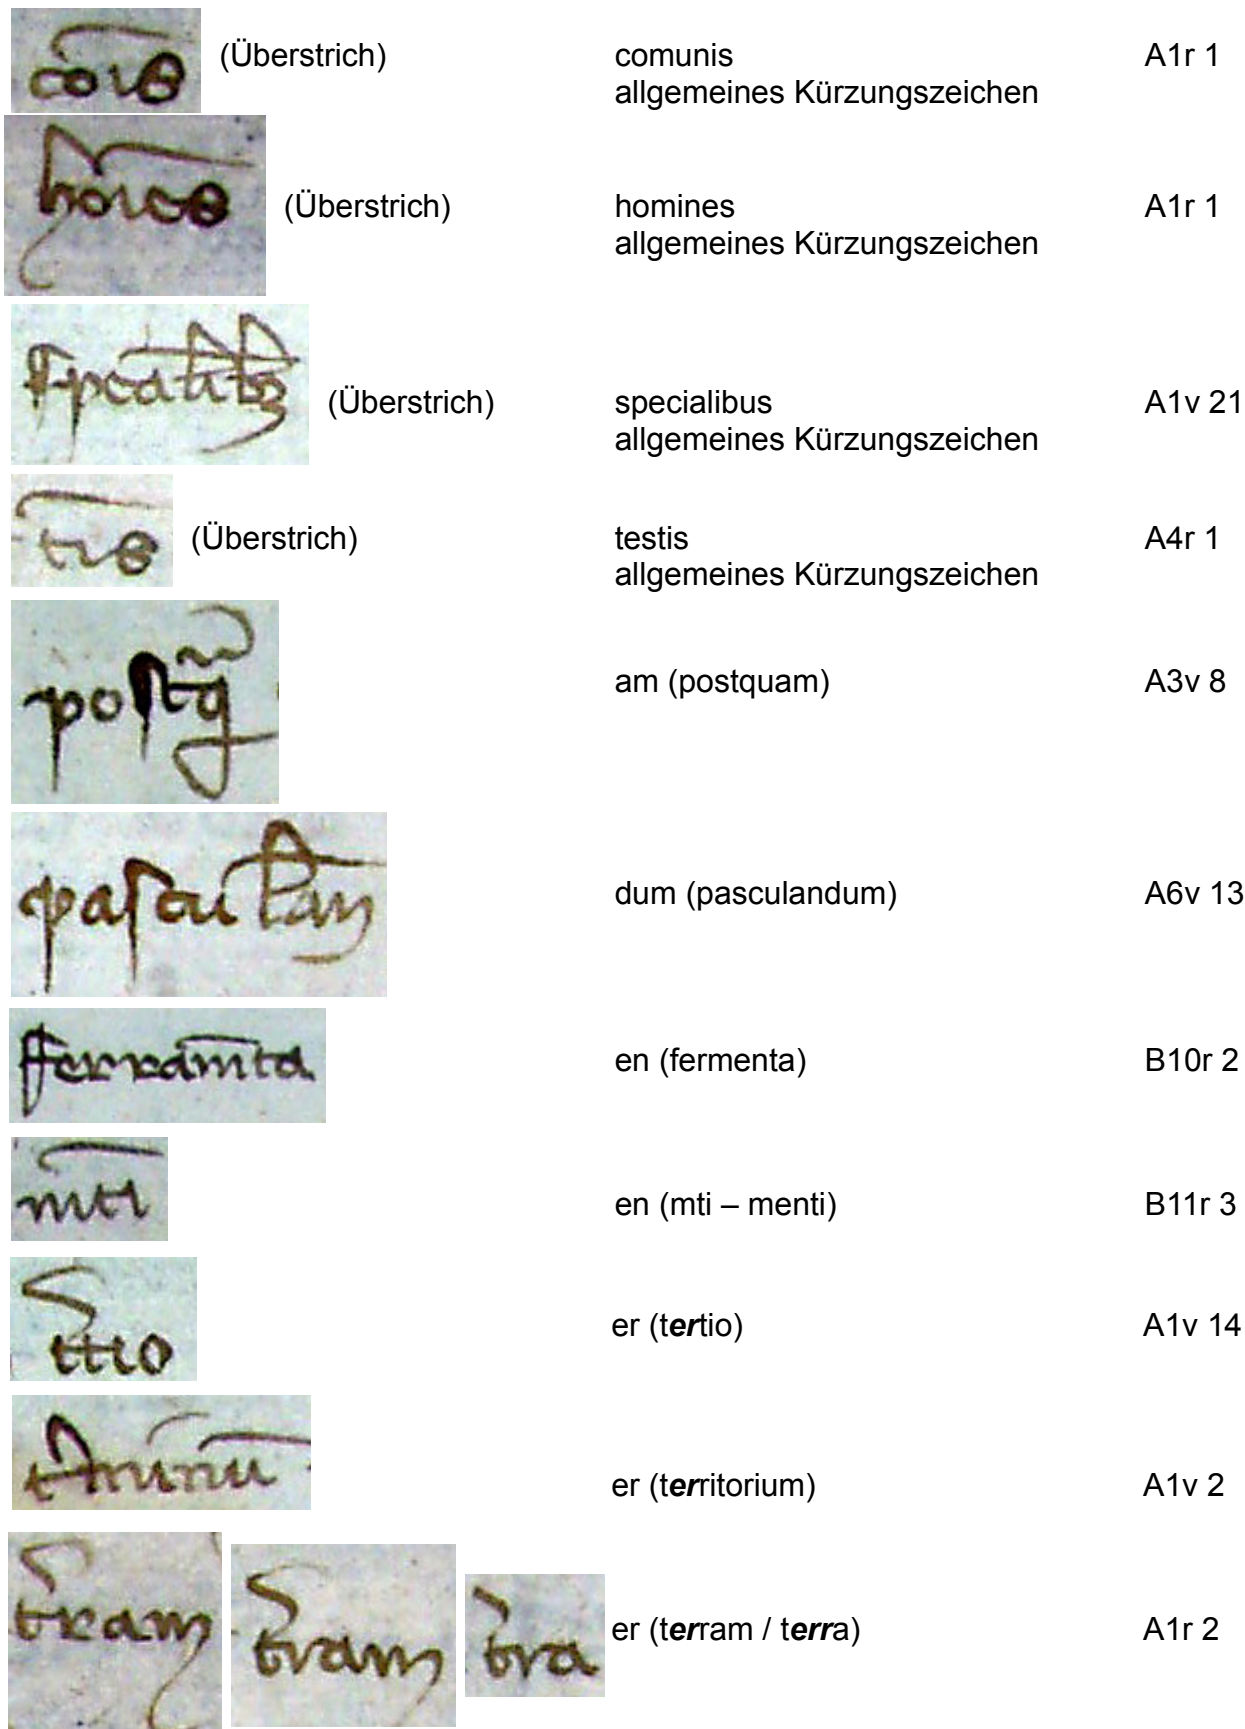 cois (Überstrich) comunis A1r 1
allgemeines Kürzungszeichen
hoies (Überstrich) homines A1r 1
allgemeines Kürzungszeichen
spcalibz (Überstrich) specialibus A1v 21
allgemeines Kürzungszeichen
tis (Überstrich) testis A4r 1
allgemeines Kürzungszeichen
postq am (postquam) A3v 8
dum (pasculandum) A6v 13
fferramta en (fermenta) B10r 2
mti en (mti – menti) B11r 3
ttio er (tertio) A1v 14
er (territorium) A1v 2
tram tram tra er (terram / terra) A1r 2